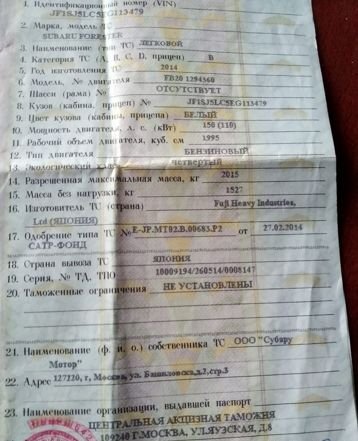 1. Идентификационный номер (VIN)
JF1SJ5LC5EG113479
2. Марка, модель ТС
SUBARU FORESTER
3. Наименование (тип ТС) ЛЕГКОВОЙ
4. Категория ТС (A, B, C, D, прицеп) B
5. Год изготовления ТС 2014
6. Модель, № двигателя FB20 1294360
7. Шасси (рама) № ОТСУТСТВУЕТ
8. Кузов (кабина, прицеп) № JF1SJ5LC5EG113479
9. Цвет кузова (кабины, прицепа) БЕЛЫЙ
10. Мощность двигателя, л. с. (кВт) 150 (110)
11. Рабочий объем двигателя, куб. см 1995
12. Тип двигателя БЕНЗИНОВЫЙ
13. Экологический класс четвертый
14. Разрешенная максимальная масса, кг 2015
15. Масса без нагрузки, кг 1527
16. Изготовитель ТС (страна) Fuji Heavy Industries,
Ltd (ЯПОНИЯ)
17. Одобрение типа ТС № E-JP.MT02.B.00685.P2 от 27.02.2014
САТР-ФОНД
18. Страна вывоза ТС ЯПОНИЯ
19. Серия, № ТД, ТПО 10009194/260514/0008147
20. Таможенные ограничения НЕ УСТАНОВЛЕНЫ
21. Наименование (ф. и. о.) собственника ТС ООО "Субару
Мотор"
22. Адрес 127220, г, Москва, ул. Башиловска,д.2,стр.3
23. Наименование организации, выдавшей паспорт
ЦЕНТРАЛЬНАЯ АКЦИЗНАЯ ТАМОЖНЯ
109240 Г.МОСКВА, УЛ.ЯУЗСКАЯ, Д.8